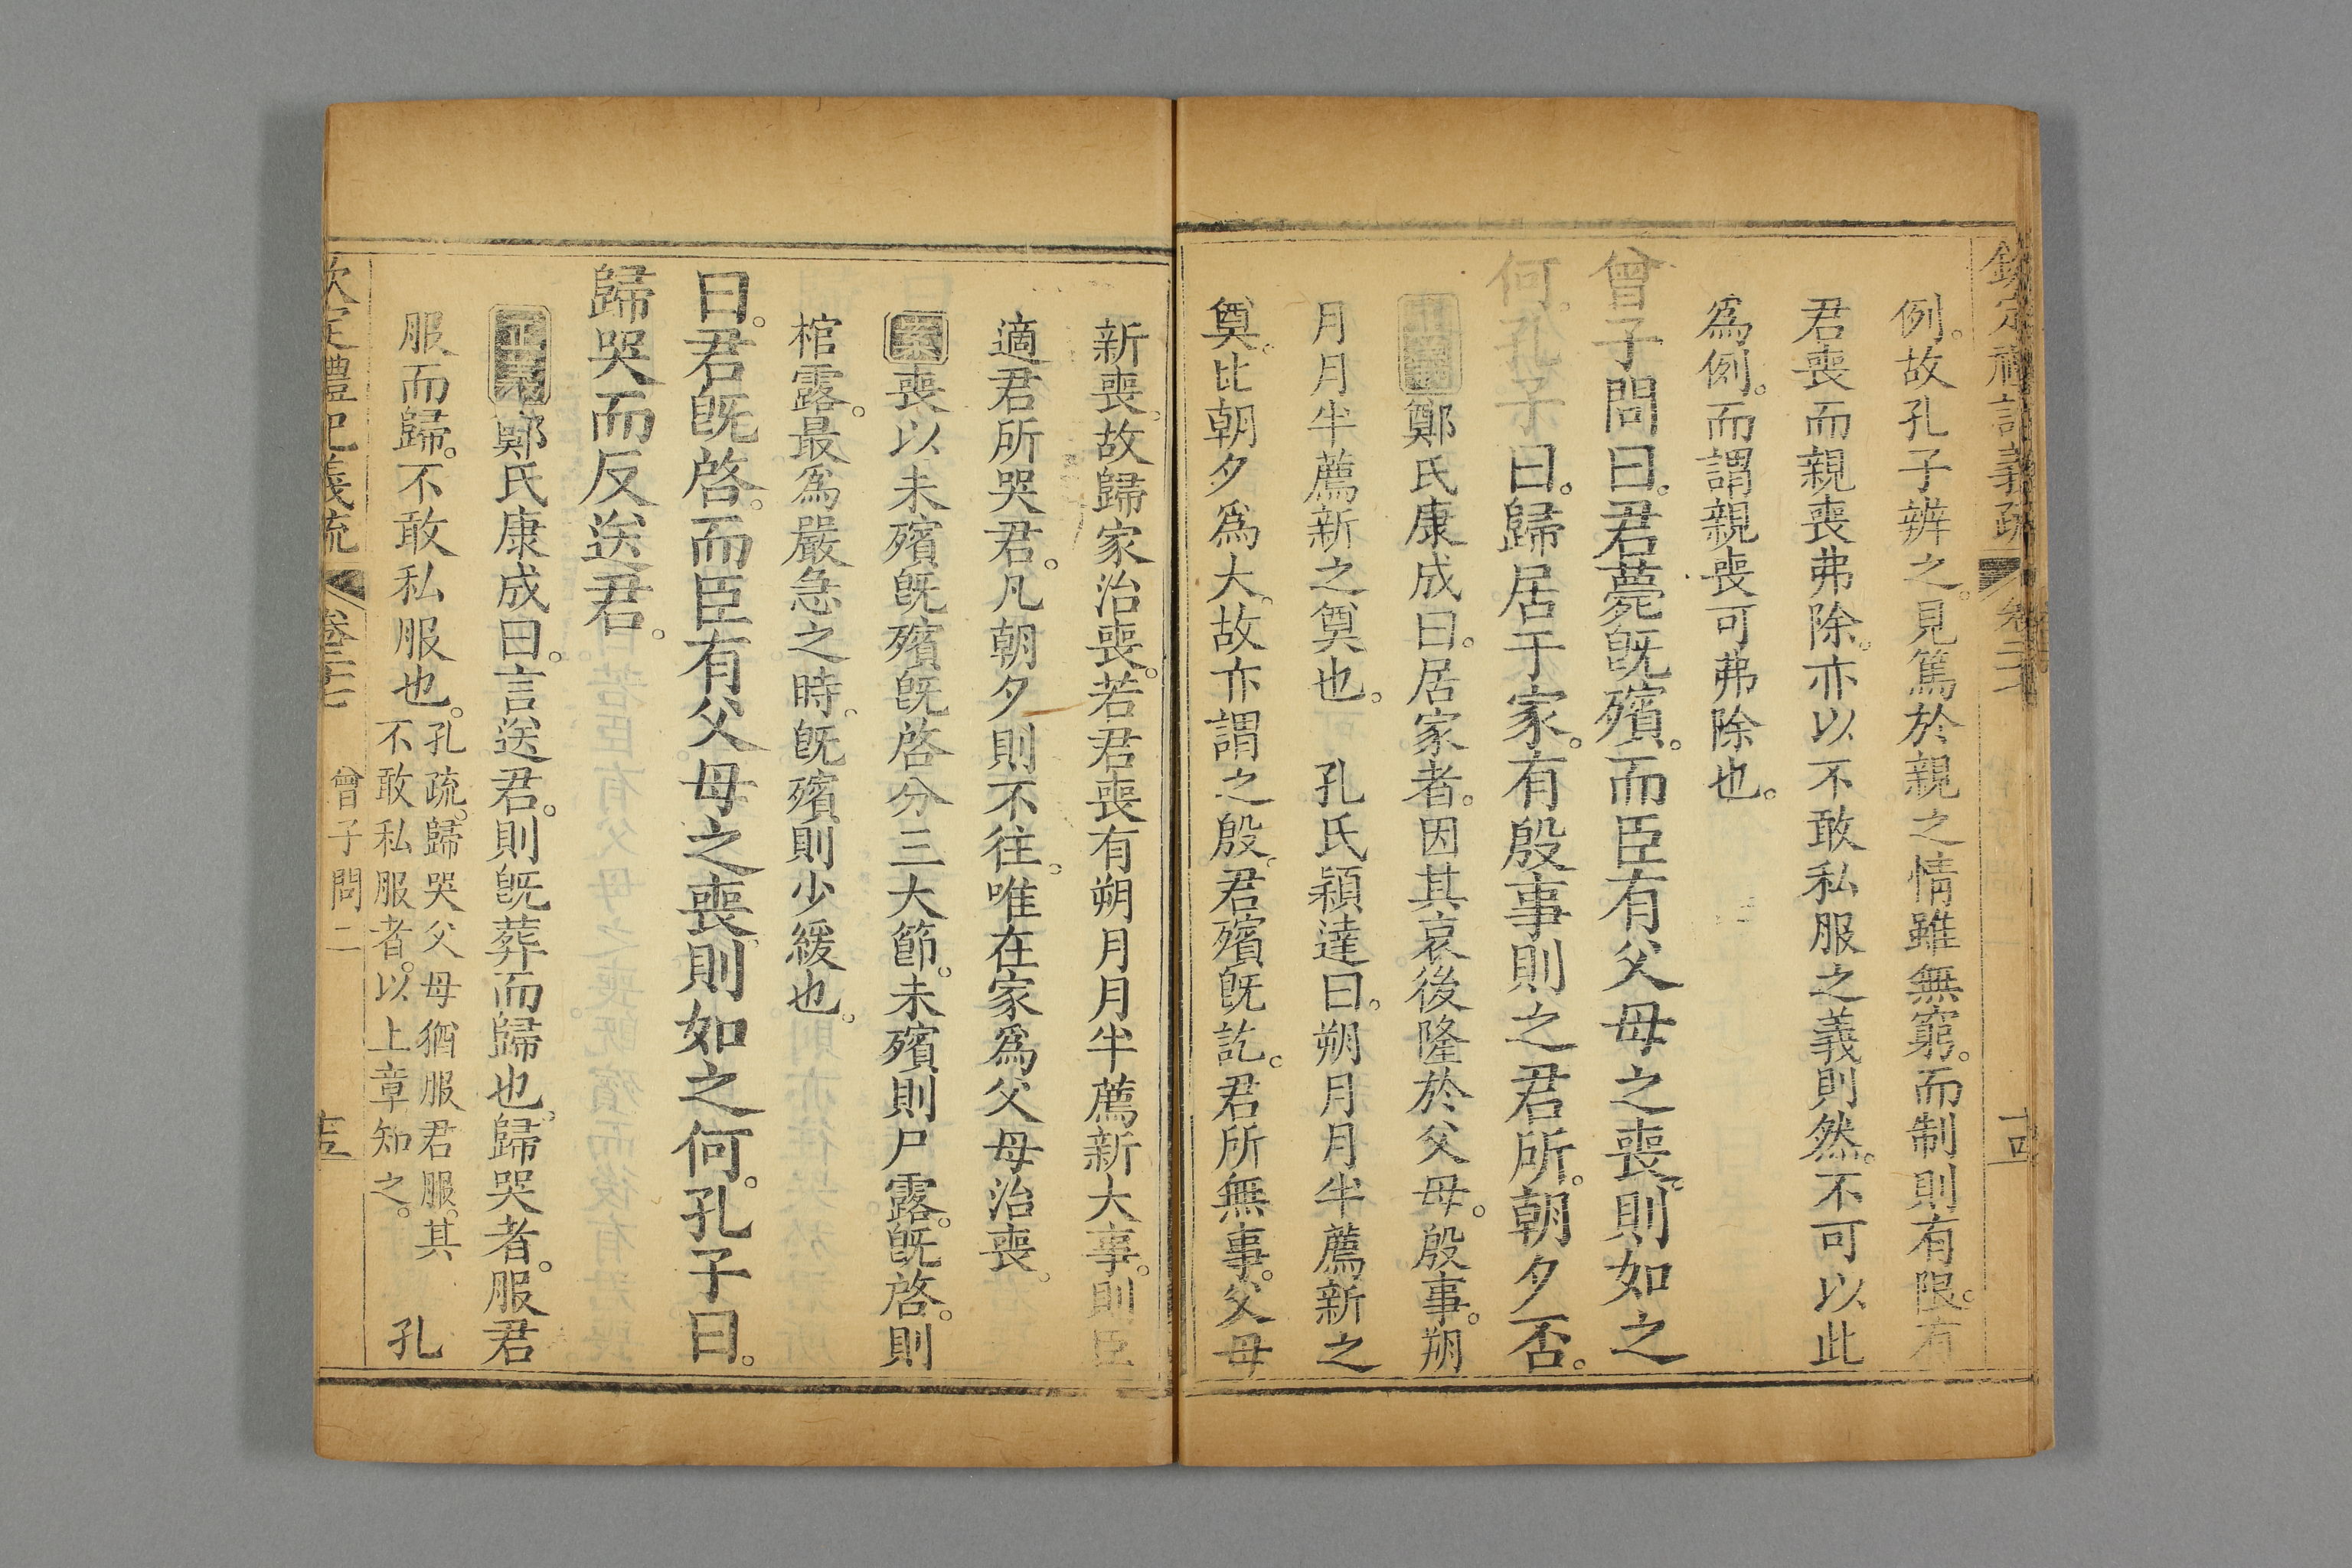 欽定禮記義疏 卷二十七 十四
例。故孔子辨之。見篤於親之情雖無窮。而制則有限。有
君喪而親喪弗除。亦以不敢私服之義則然。不可以此
爲例。而謂親喪可弗除也。
曾子問曰。君薨旣殯。而臣有父母之喪。則如之
何。孔子曰。歸居于家。有殷事則之君所。朝夕否。
正義鄭氏康成曰。居家者。因其哀後隆於父母。殷事。朔
月月半薦新之奠也。 孔氏穎達曰。朔月月半薦新之
奠。比朝夕爲大。故亦謂之殷。君殯旣訖。君所無事。父母
新喪。故歸家治喪。若君喪有朔月月半薦新大事。則臣
適君所哭君。凡朝夕則不往。唯在家爲父母治喪。
案喪以未殯旣殯旣啓分三大節。未殯則尸露。旣啓。則
棺露。最爲嚴急之時。旣殯則少緩也。
曰。君旣啓。而臣有父母之喪。則如之何。孔子曰。
歸哭而反送君。
正義鄭氏康成曰。言送君。則旣葬而歸也。歸哭者。服君
服而歸。不敢私服也。孔疏。歸哭父母猶服君服。其
不敢私服者。以上章知之。 孔
欽定禮記義疏 卷二十七 曾子問二 十五